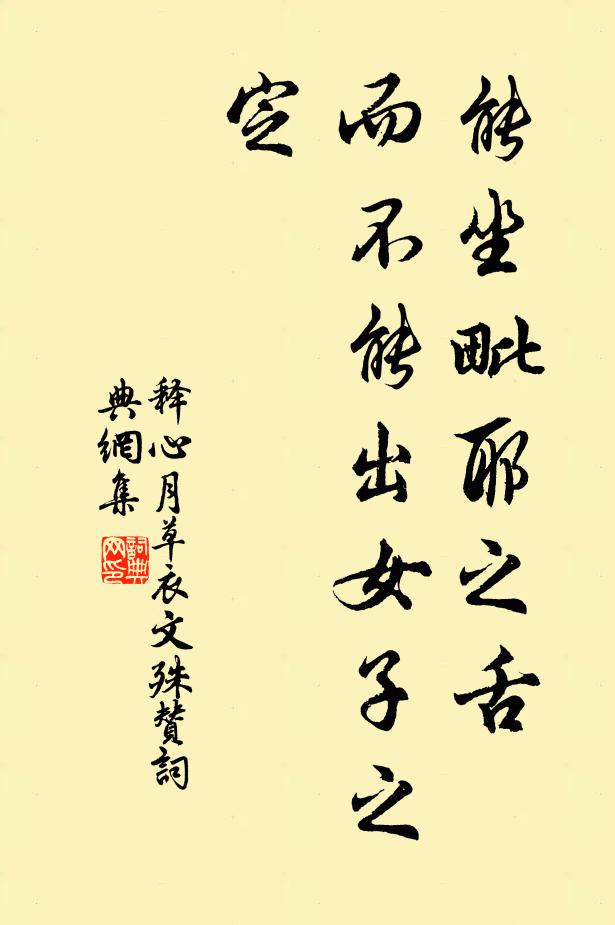 能坐毗耶之舌
而不能出女子之
定
释心月草衣文殊赞詞
典網集
詞典
网印